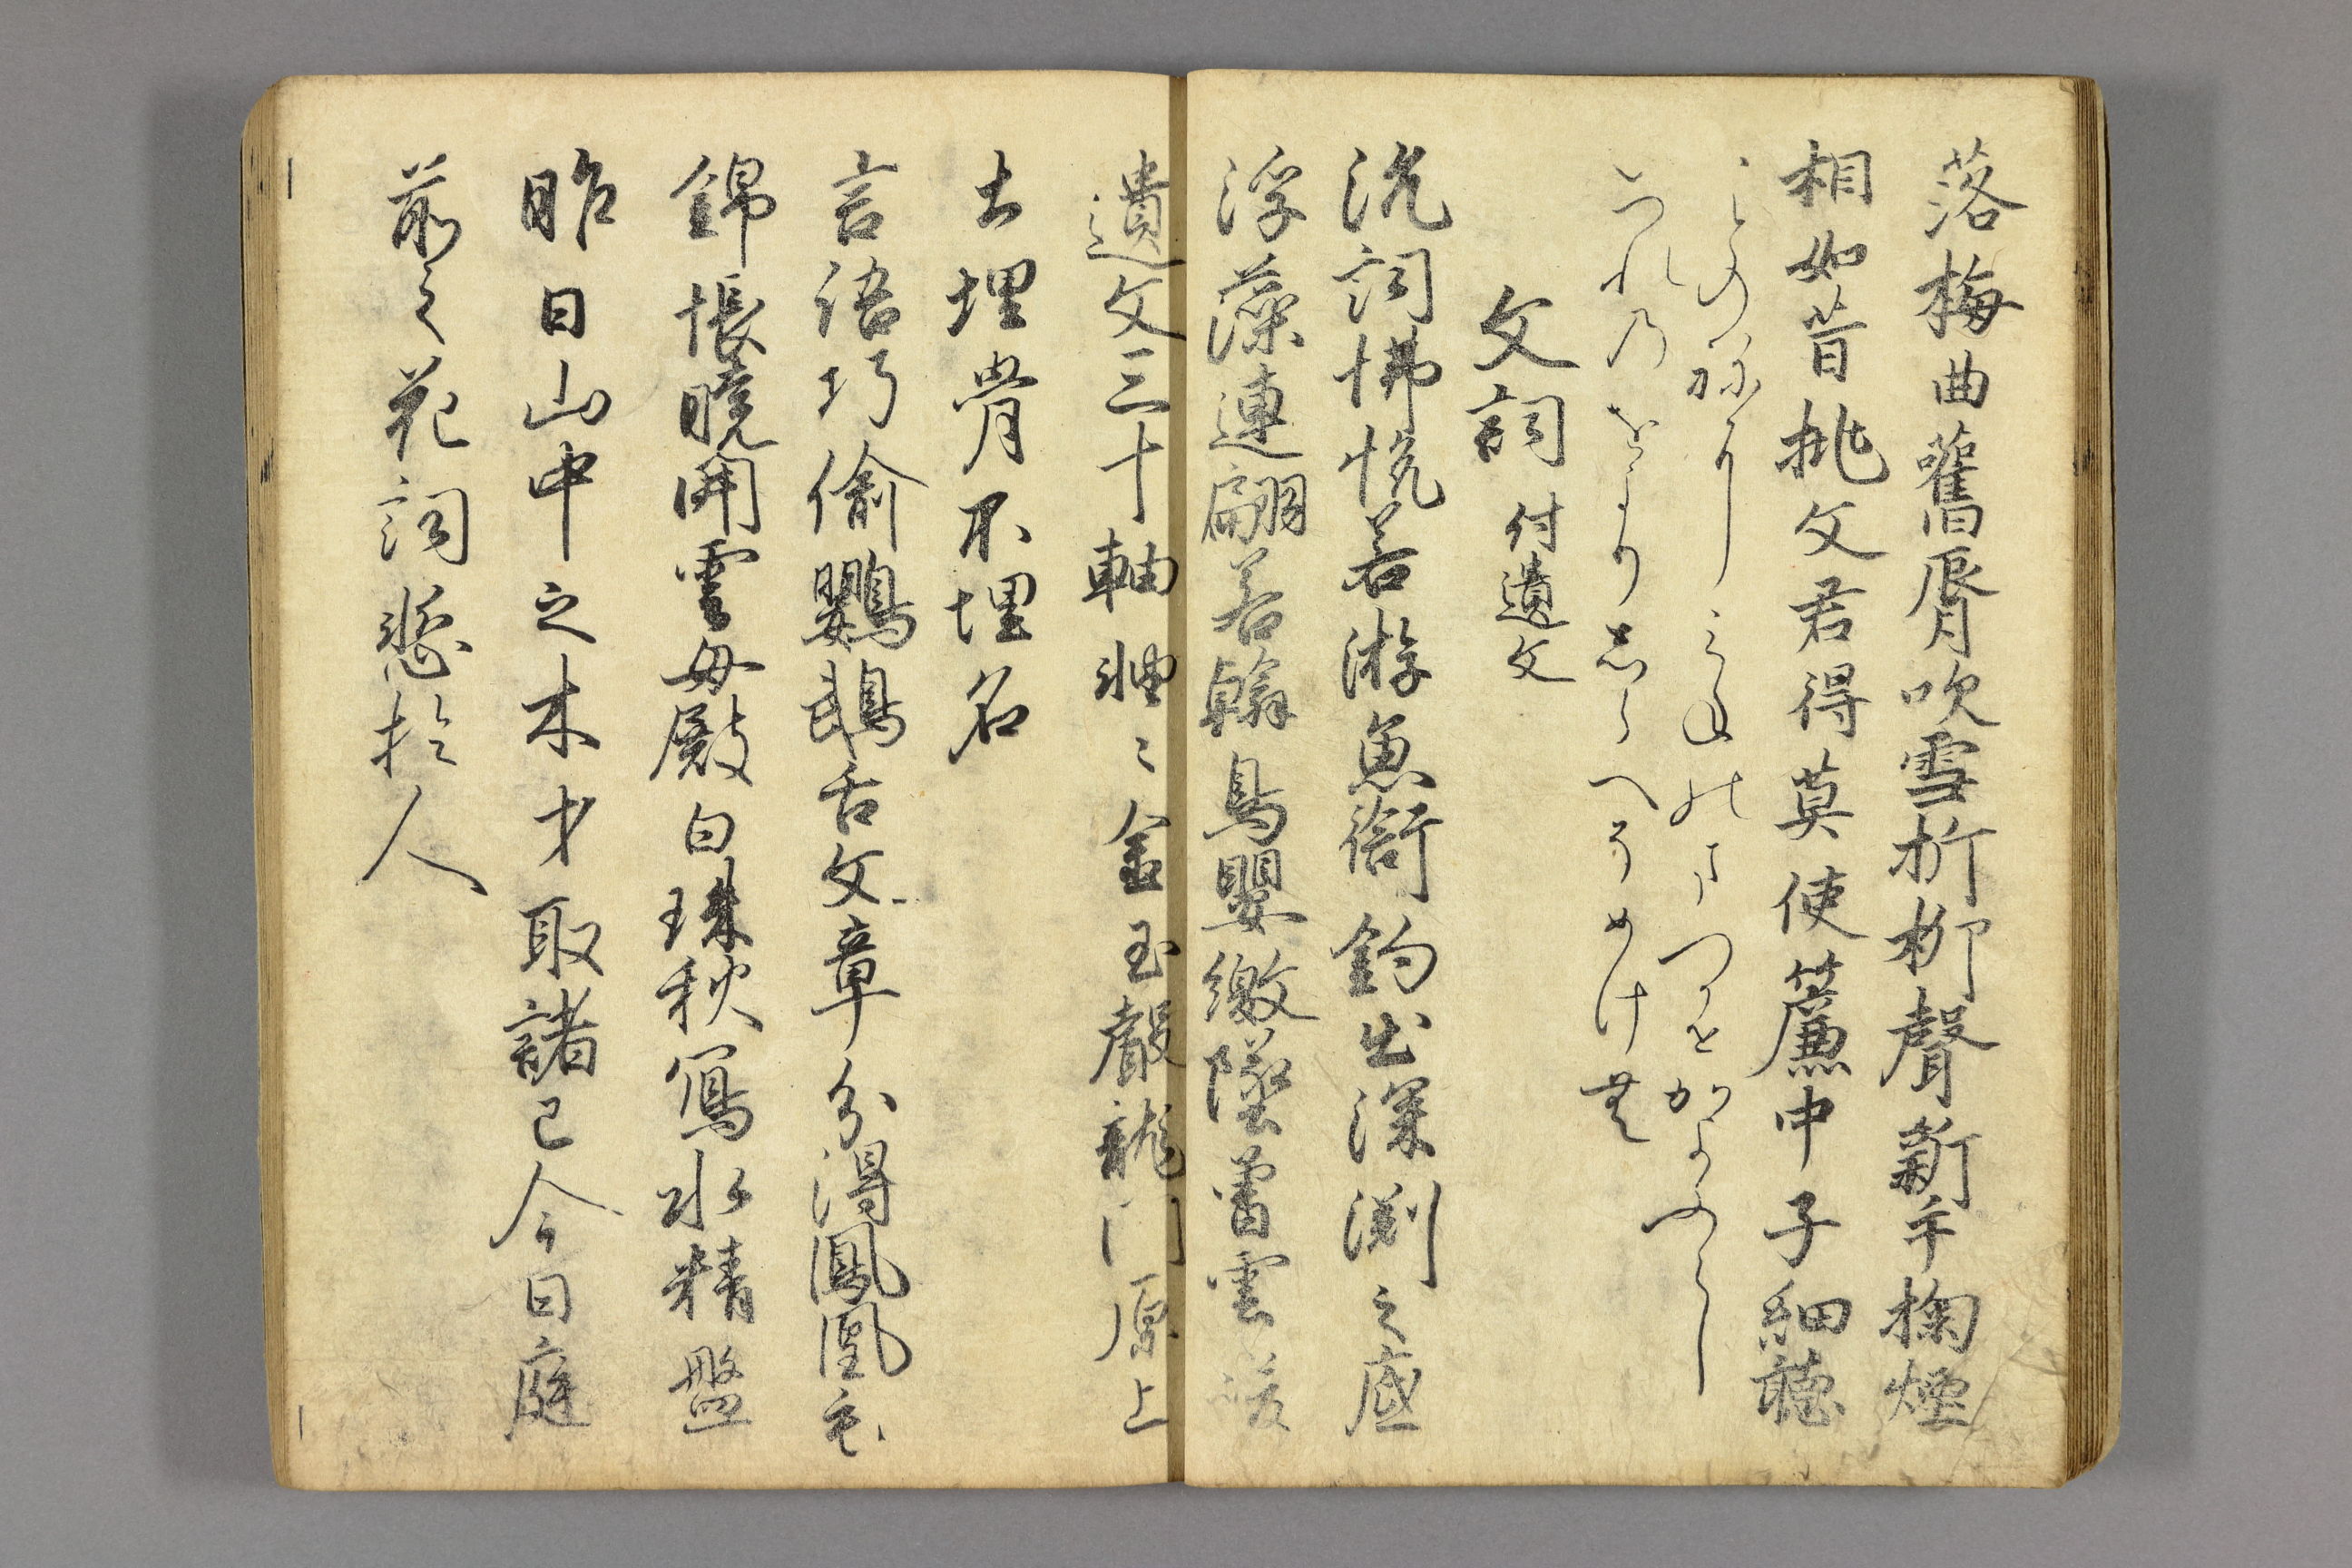 落梅曲舊脣吹雪折柳聲新手掬煙
相如昔挑文君得莫使簾中子細聴
ことのねにみねのまつかせかよふらし
いつれのをよりしらへそめけむ
文詞 付遺文
沈詞怫悦若游魚銜鈎出深渕之底
浮藻連翩若翰鳥嬰繳墜曽雲之峻
遺文三十軸軸〻金玉聲龍門原上
土埋骨不埋名
言語巧偷鸚鵡舌文章分得鳳凰毛
錦帳曉開雲母殿白珠秋寫水精盤
昨日山中之木才取諸己今日庭
前之花詞慙於人